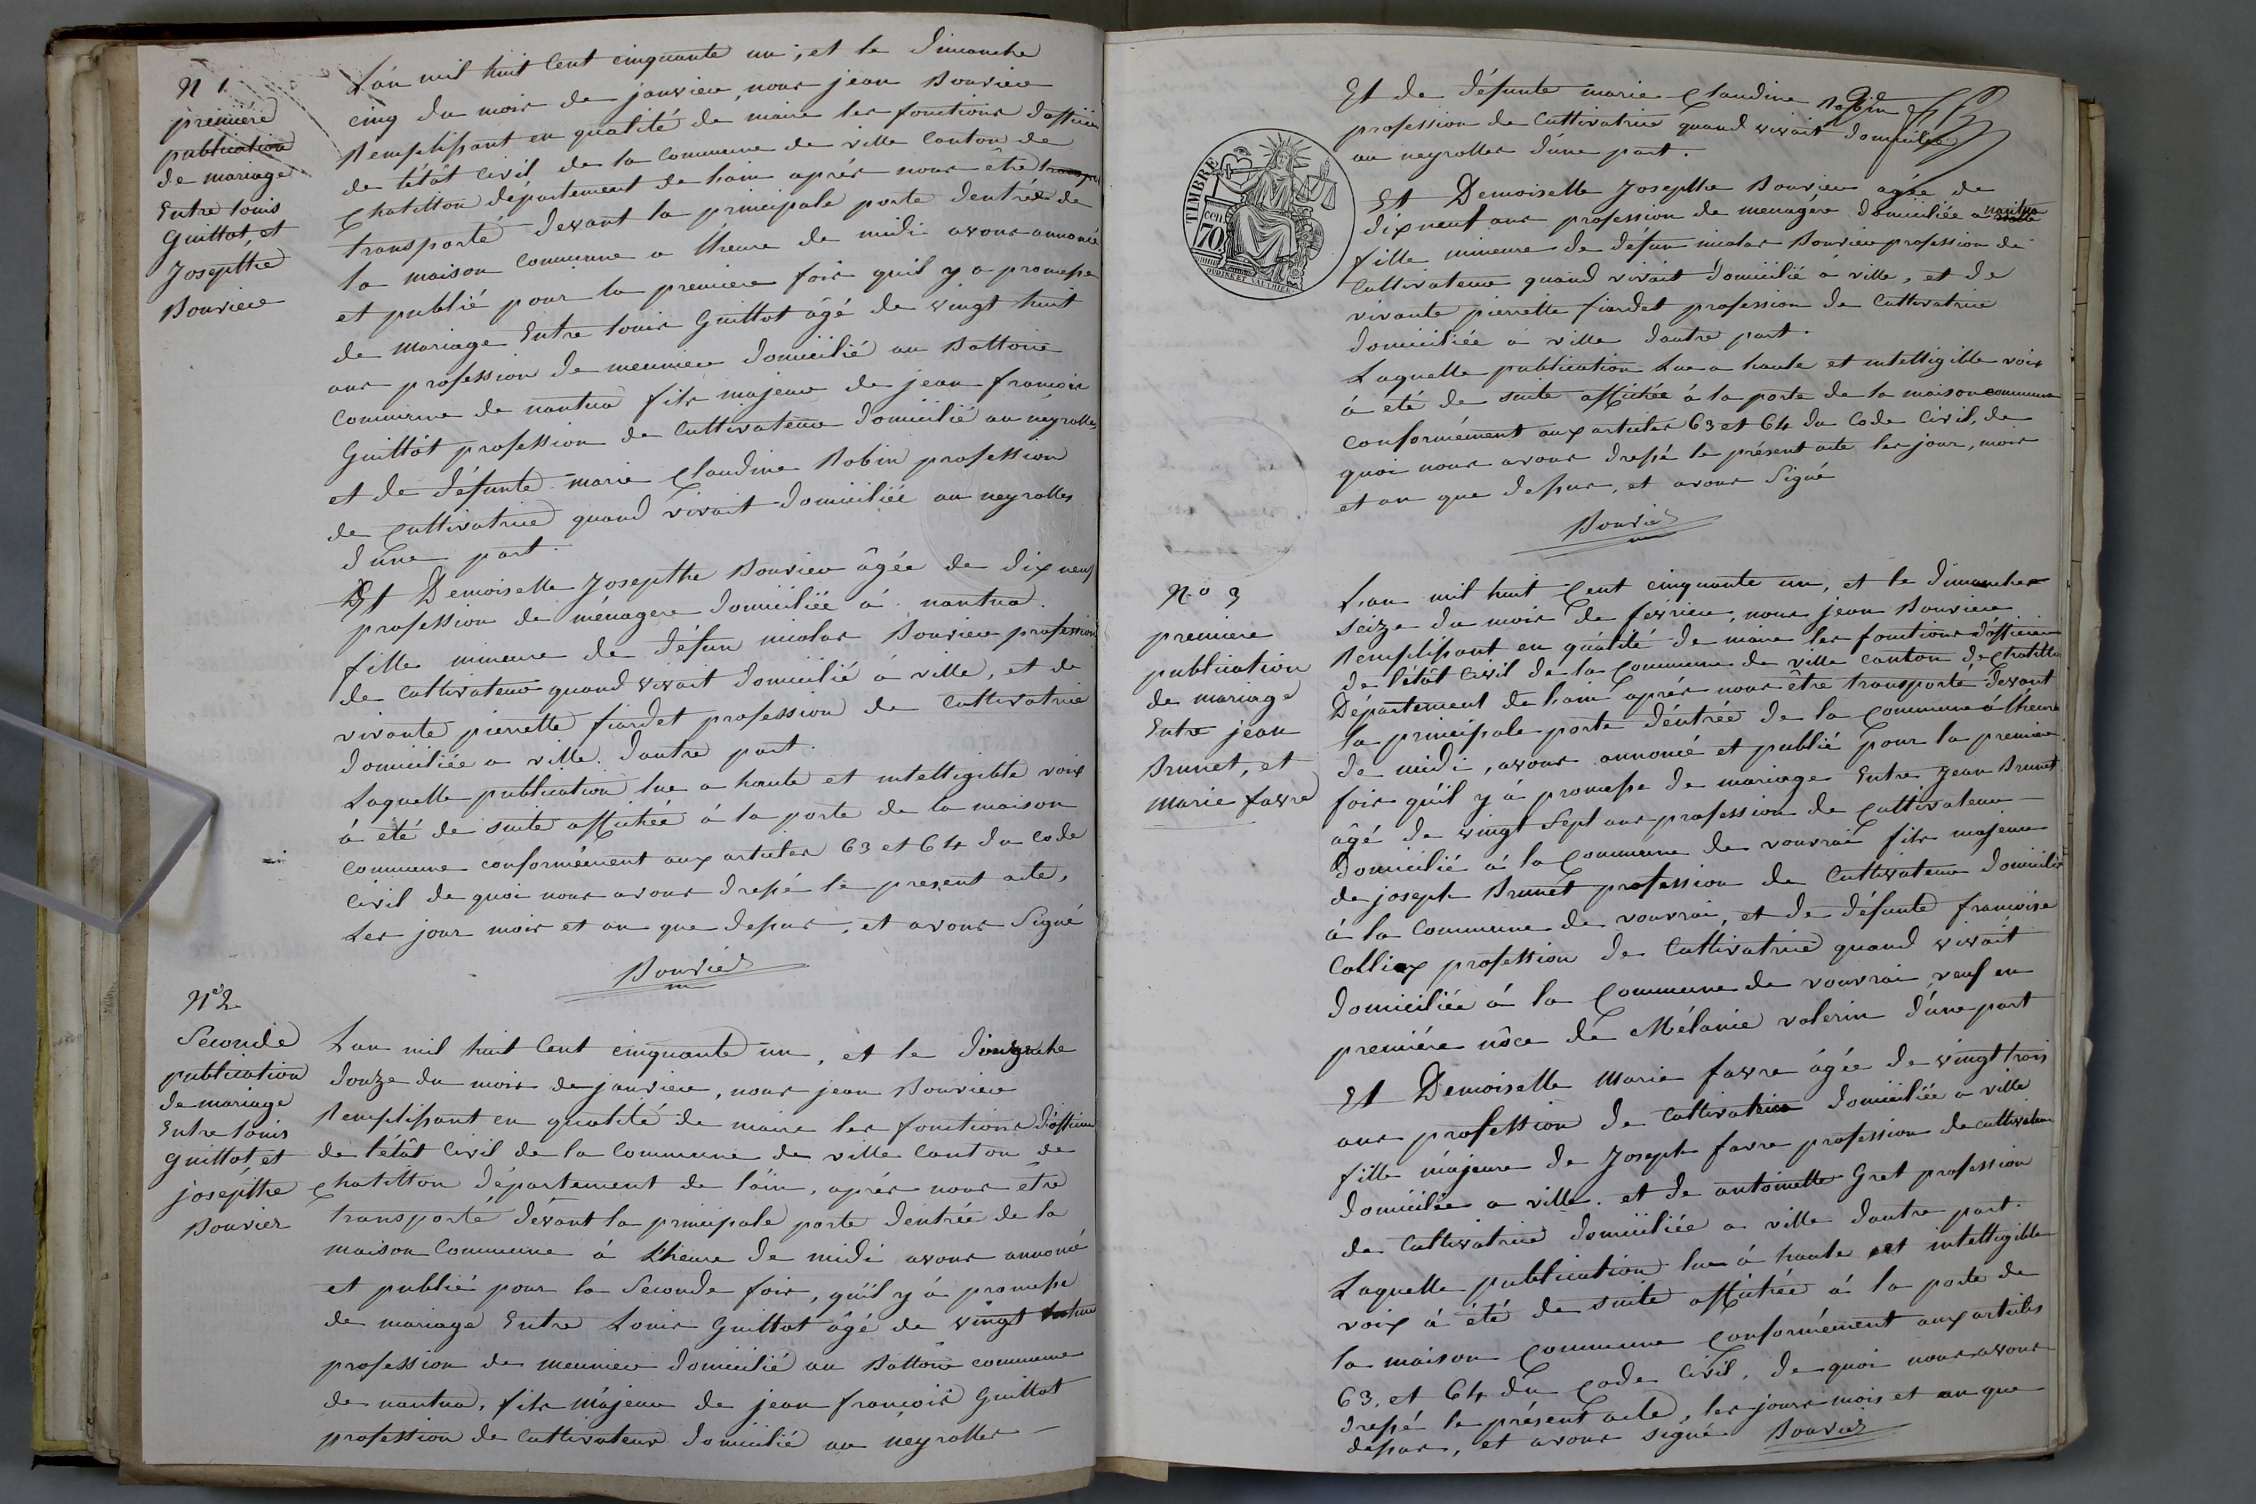 N 1.
première
publication
de mariage
Entre louis
Guillot, et
Josephte
Bouvier
L'an mil huit Cent cinquante un, et le dimanche
cinq du mois de janvier, nous jean Bouvier
Remplissant en qualité de maire les fonctions d'officier
de l'état civil de la Commune de ville Canton de
Chatillon département de l'ain après nous être
transporté devant la principale porte dentrée de
la maison Commune a l'heure de midi avons annoncé
et publié pour la premiere fois quil y a promesse
de mariage Entre louis Guillot âgé de vingt huit
ans profession de meunier domicilié au Battoir
Commune de nantua fils majeur de jean francois
Guillot profession de Cultivateur domicilié au néyrolles
et de défunte marie Claudine Robin profession
de Cultivatrice quand vivait domiciliée au neyrolles
dune part.
Et Demoiselle Josephte Bouvier âgée de dix neuf
profession de ménagere domiciliée à nantua.
fille mineure de défun nicolas Bouvier profession
de Cultivateur quand vivait domicilié à ville, et de
vivante pierrette fiardet profession de Cultivatrice
domiciliée a ville. dautre part.
Laquelle publication lue a haute et intelligible voix
à été de suite affichée à la porte de la maison
commune conformément aux articles 63 et 64 du Code
Civil de quoi nous avons dressé le present acte,
Les jour mois et an que dessus, et avons Signé
Bouvier
N° 2
Seconde
publication
de mariage
Entre louis
Guillot, et
josephte
Bouvier
L'an mil huit Cent cinquante un, et le dimanche
douze du mois de janvier, nous jean Bouvier
Remplissant en qualité de maire les fonctions d'officier
de l'étât Civil de la Commune de ville Canton de
Chatillon département de l'ain, après nous être
transporté devant la principale porte dentrée de la
maison Commune à Lheure de midi avons annoncé
et publié pour la Seconde fois, qu'il y à promesse
de mariage Entre Louis Guillot âgé de vingt
profession de meunier domicilié au Battoir commune
de nantua, fils májeur de jean françois Guillot
profession de Cultivateur domicilié au néyrolles
Et de défunte marie Claudine Robin
profession de Cultivatrice quand vivait domiciliée
au neyrolles dúne part.
TIMBRE
cen
70
OUDINE ET VAUTHIER
Et Demoiselle Josephte Bouvier agée de
dix neuf ans profession de menagére domiciliée a nantua
fille mineure de défun nicolas Bouvier profession de
Cultivateur quand vivait domicilié à ville, et de
vivante pierrette fiardet profession de Cultivatrice
domiciliée à ville dautre part.
Laquelle publication Lue a haute et intelligible voix
à été de suite affichée à la porte de la maison commune
Conformément aux articles 63 et 64 du Code Civil, de
quoi nous avons dressé le présent acte les jour, mois
et an que dessus, et avons Signé
Bouvier
N.o 3
premiere
publication
de mariage
Entre jean
Brunet, et
Marie favre
L'an mil huit Cent cinquante un, et le dimanche
seize du mois de fevrier, nous jean Bouvier
Remplissant en quálité de maire les fonctions d'officier
de l'étât Civil de la Commune de ville canton de Chatillon
Département de lain après nous être transporté devant
la principale porte d'entrée de la Commune à l'heure
de midi, avons annoncé et publié pour la premiere
fois qu'il y à promesse de mariage Entre Jean Brunet
âgé de vingt Sept ans profession de Cultivateur
Domicilié à la Commune de vouvrai fils majeur
de joseph Brunet profession de Cultivateur domicilié
à la Commune de vouvrai, et de défunte francoise
Colliex profession de Cultivatrice quand vivait
domiciliée à la Commune de vouvrai veuf en
première nôce de Mélanie valerin d'une part
Et Demoiselle Marie favre âgée de vingt trois
ans profession de Cultivatrice domiciliée a ville
fille májeure de Joseph favre profession de cultivateur
domicilié a ville. et de antoinette Gret profession
de Cultivatrice domiciliée a ville dautre part.
Laquelle publication lue à haute et intelligible
voix à été de suite affichée à la porte de
la maison Commune Conformément aux articles
63. et 64 du Code Civil, de quoi nous avons
dressé le présent acte, les jours mois et an que
dessus, et avons signé Bouvier